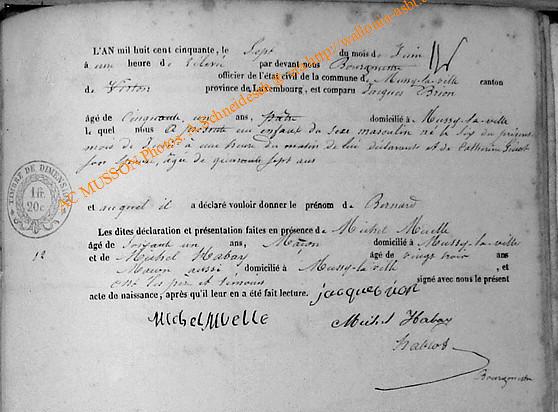 L'AN mil huit cent cinquante, le Sept du mois de Juin
à une heure de par devant nous Bourgmestre
officier de l'état civil de la commune de Mussy-la-ville canton
de Virton province de Luxembourg, est comparu Jacques
âgé de Cinquante un ans, domicilié à Mussy-la-ville
lequel nous a présenté un enfant du sexe masculin né le six du présent
mois de Juin à une heure du matin de lui déclarant et de Catherine
son épouse, âgée de quarante sept ans
TIMBRE DE DIMENSION
1 fr.
20 c.
et auquel il a déclaré vouloir donner le prénom de Bernard
Les dites déclaration et présentation faites en présence de Michel Muelle
âgé de soixante un ans, Maçon domicilié à Mussy-la-ville
12 et de Michel Habay âgé de vingt trois ans
Maçon aussi domicilié à Mussy-la-ville, et
ont les père et témoins signé avec nous le présent
acte de naissance, après qu'il leur en a été fait lecture.
MIchel MuELLE Michel Habay
Bourgmestre
AC MUSSON Photos: A. Schneidesch @ http://wallonia-asbl